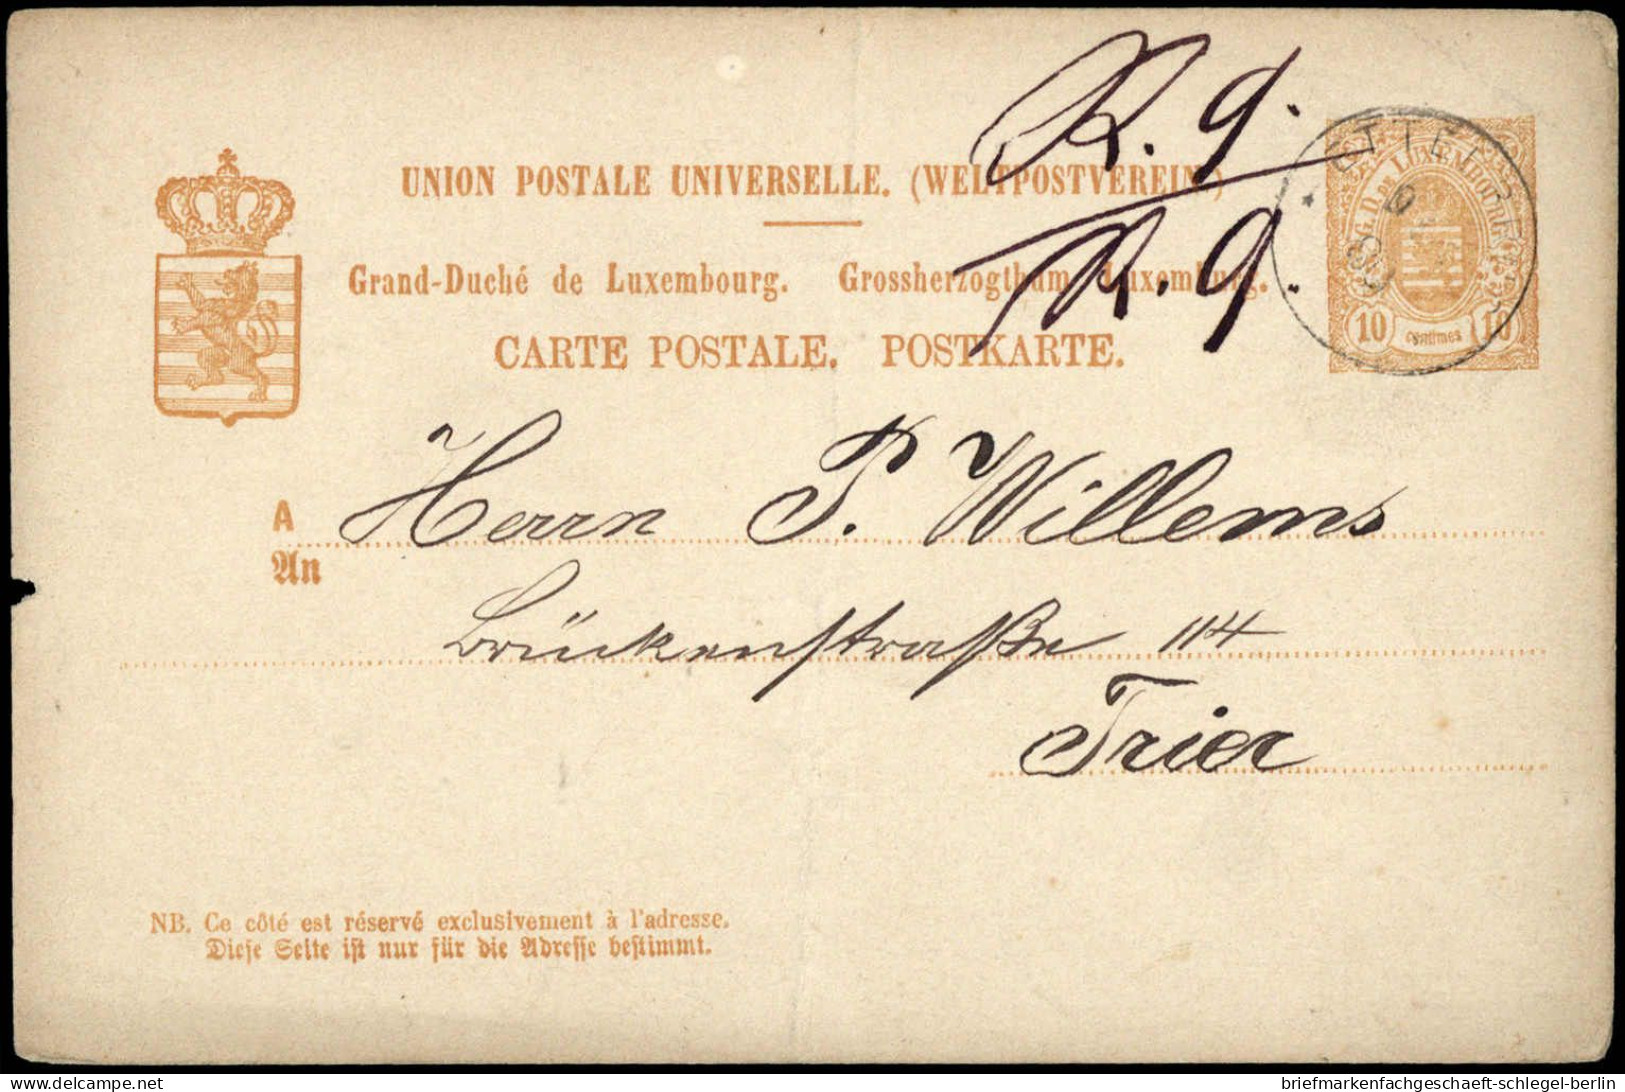 R. 9.
UNION POSTALE UNIVERSELLE. (WELTPOSTVEREIN)
R. 9.
Grand-Duché de Luxembourg. Grossherzogthum Luxemburg.
CARTE POSTALE. POSTKARTE.
G. D. DE LUXEMBOURG
10 centimes 10
A Herrn P. Willems
An
Brückenstraße 114
Trier
NB. Ce côté est réservé exclusivement à l'adresse.
Diese Seite ist nur für die Adresse bestimmt.
briefmarkenfachgeschaeft-schlegel-berlin